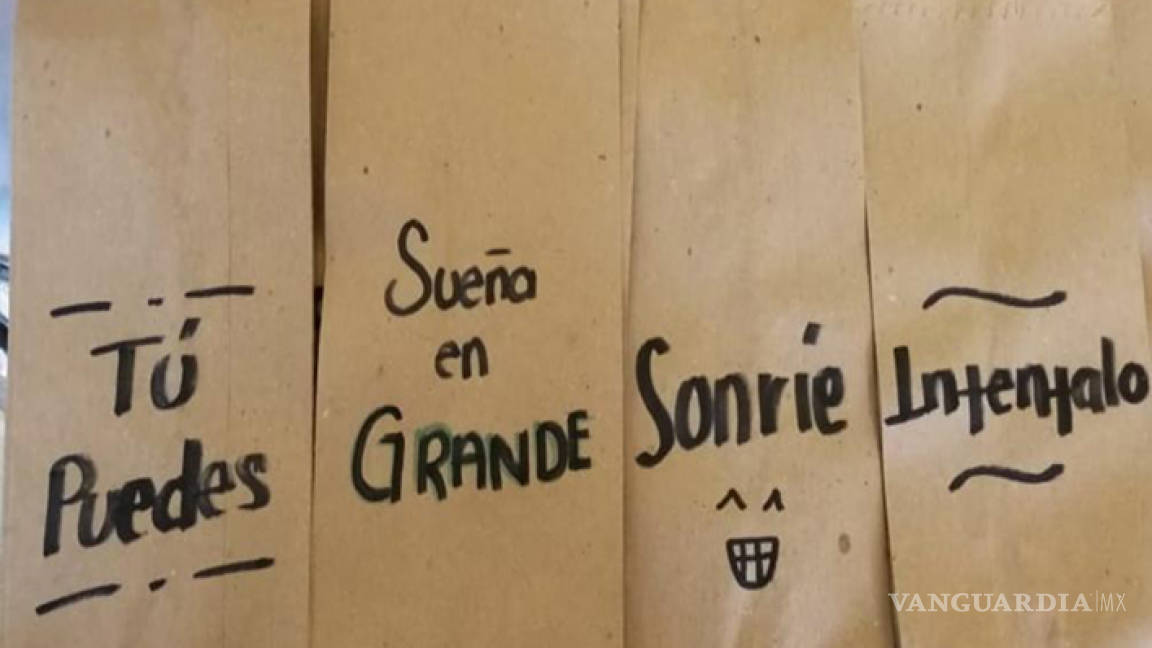 Tú
Puedes
Sueña
en
GRANDE
Sonríe
Intentalo
VANGUARDIA|MX